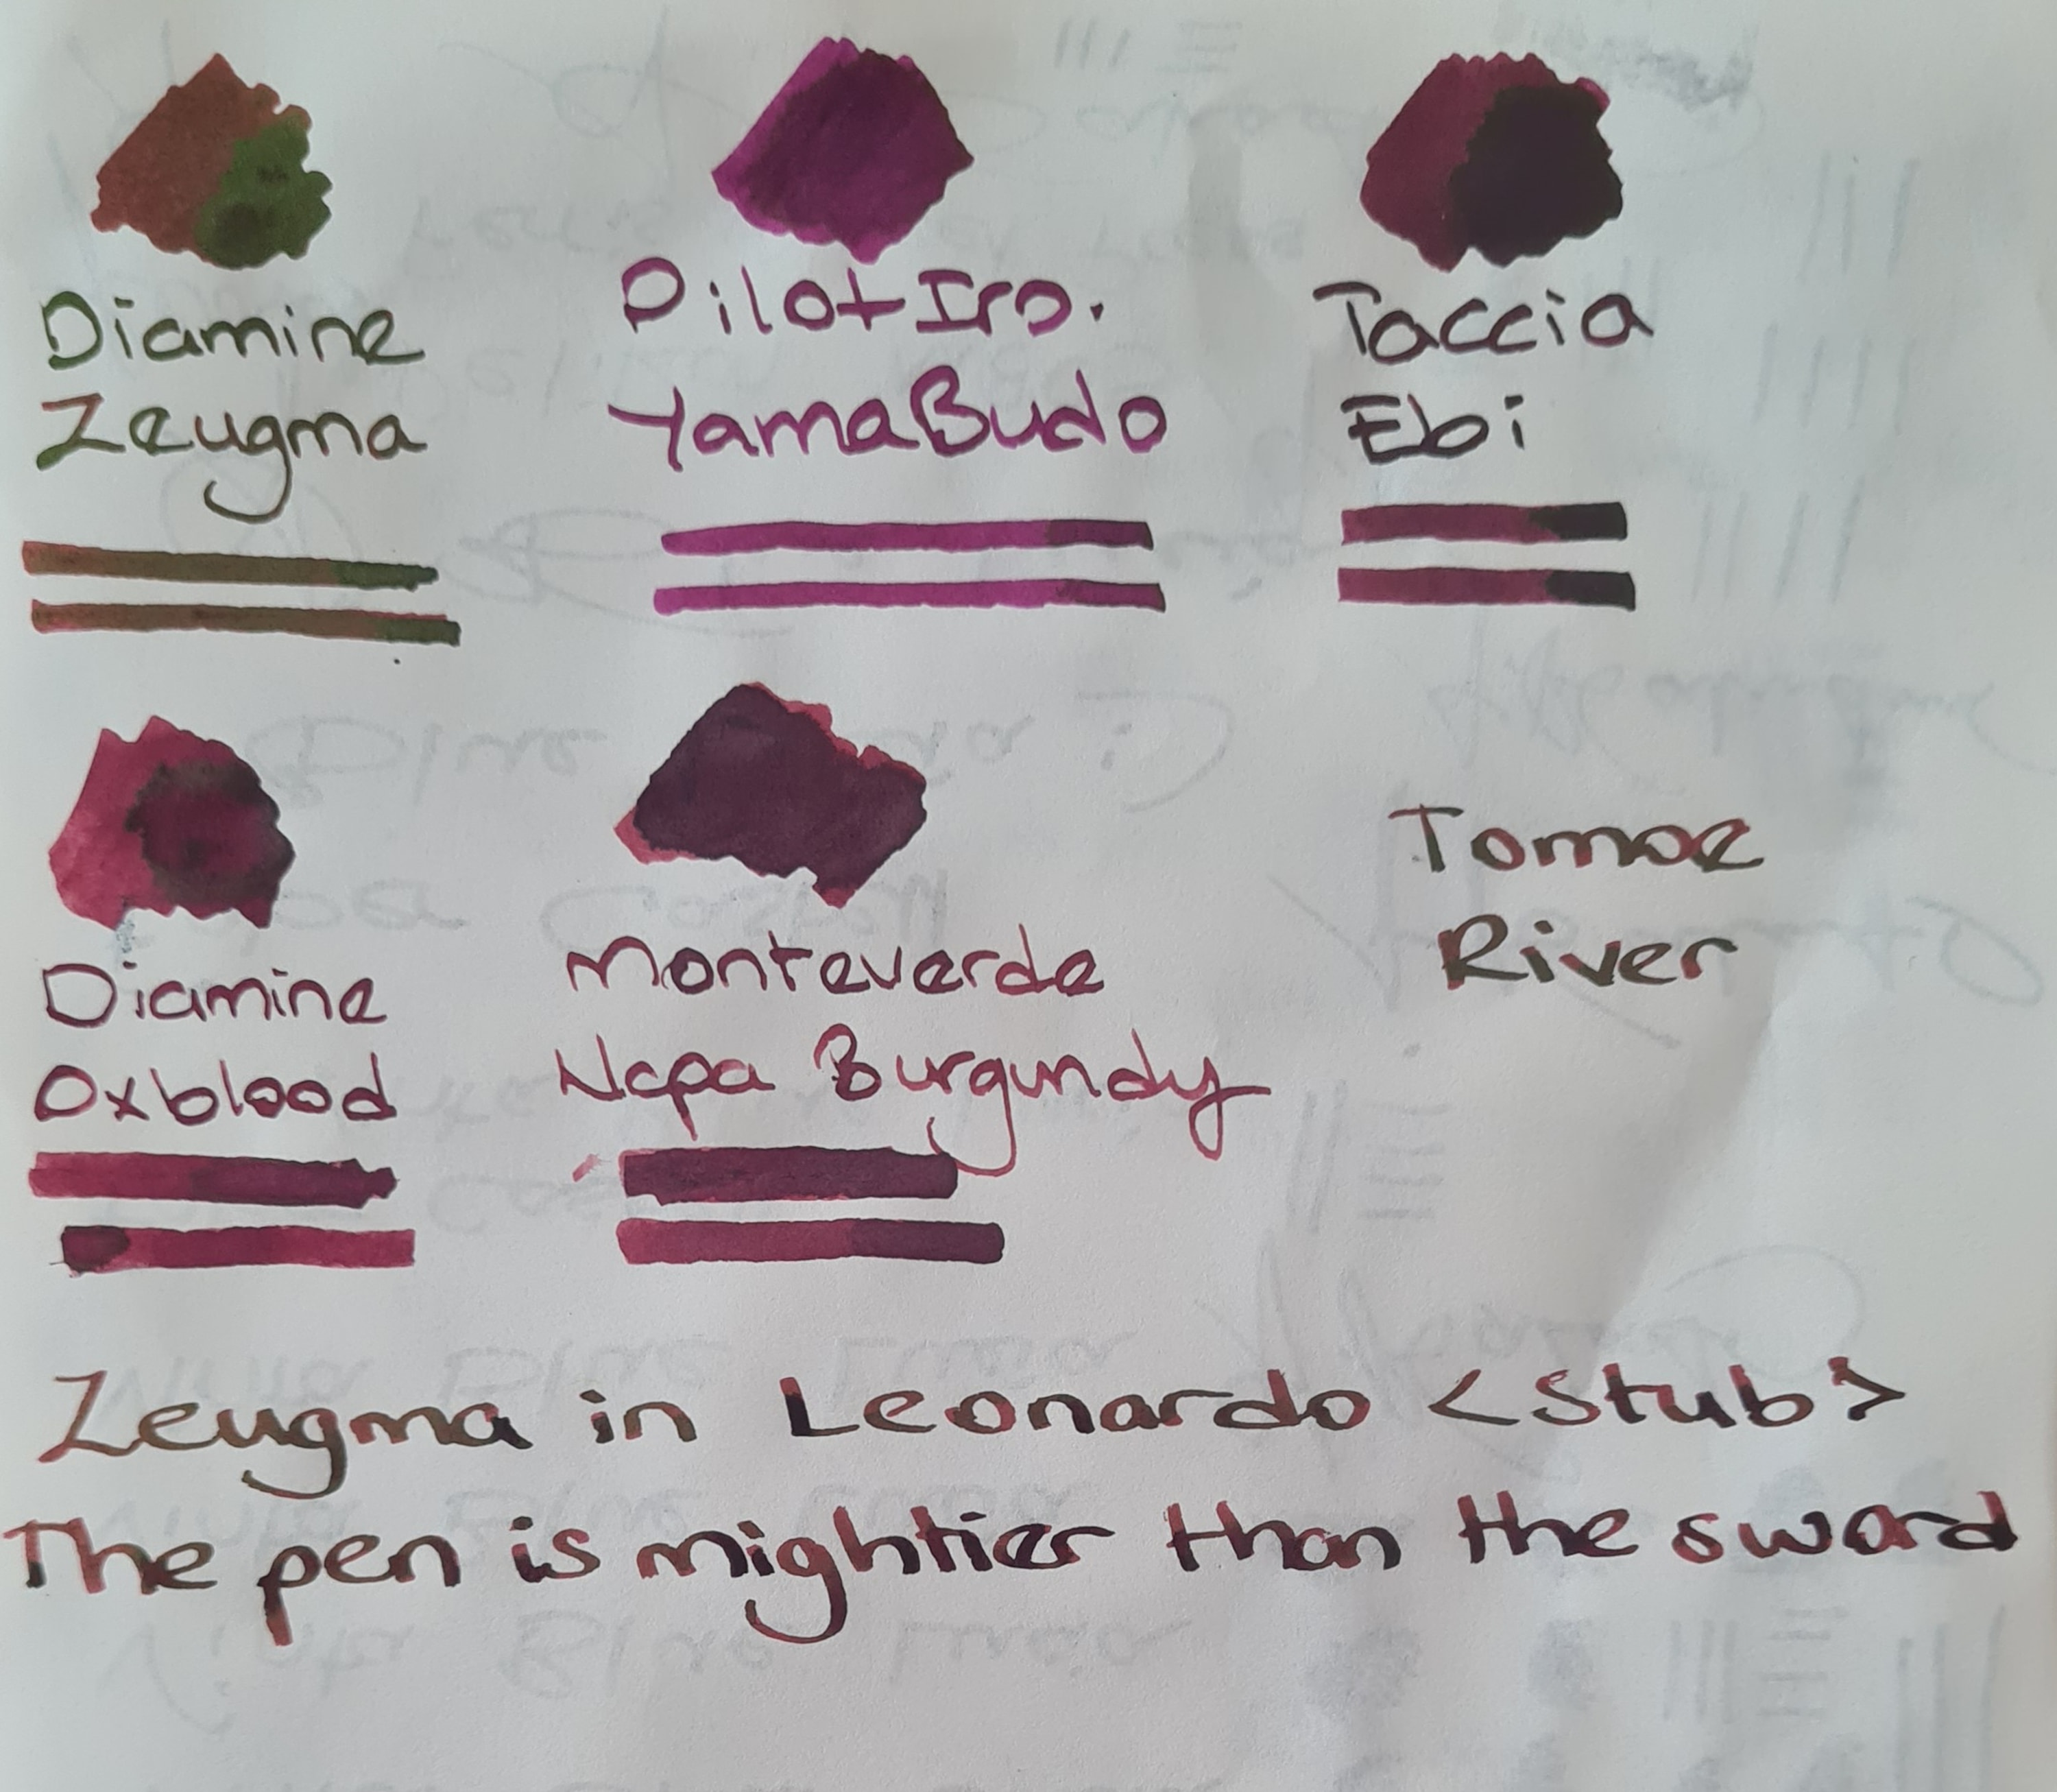 Diamine
Zeugma
Pilot Iro.
YamaBudo
Taccia
Ebi
Diamine
Oxblood
Monteverde
Napa Burgundy
Tomoe
River
Zeugma in Leonardo <Stub>
The pen is mightier than the sword